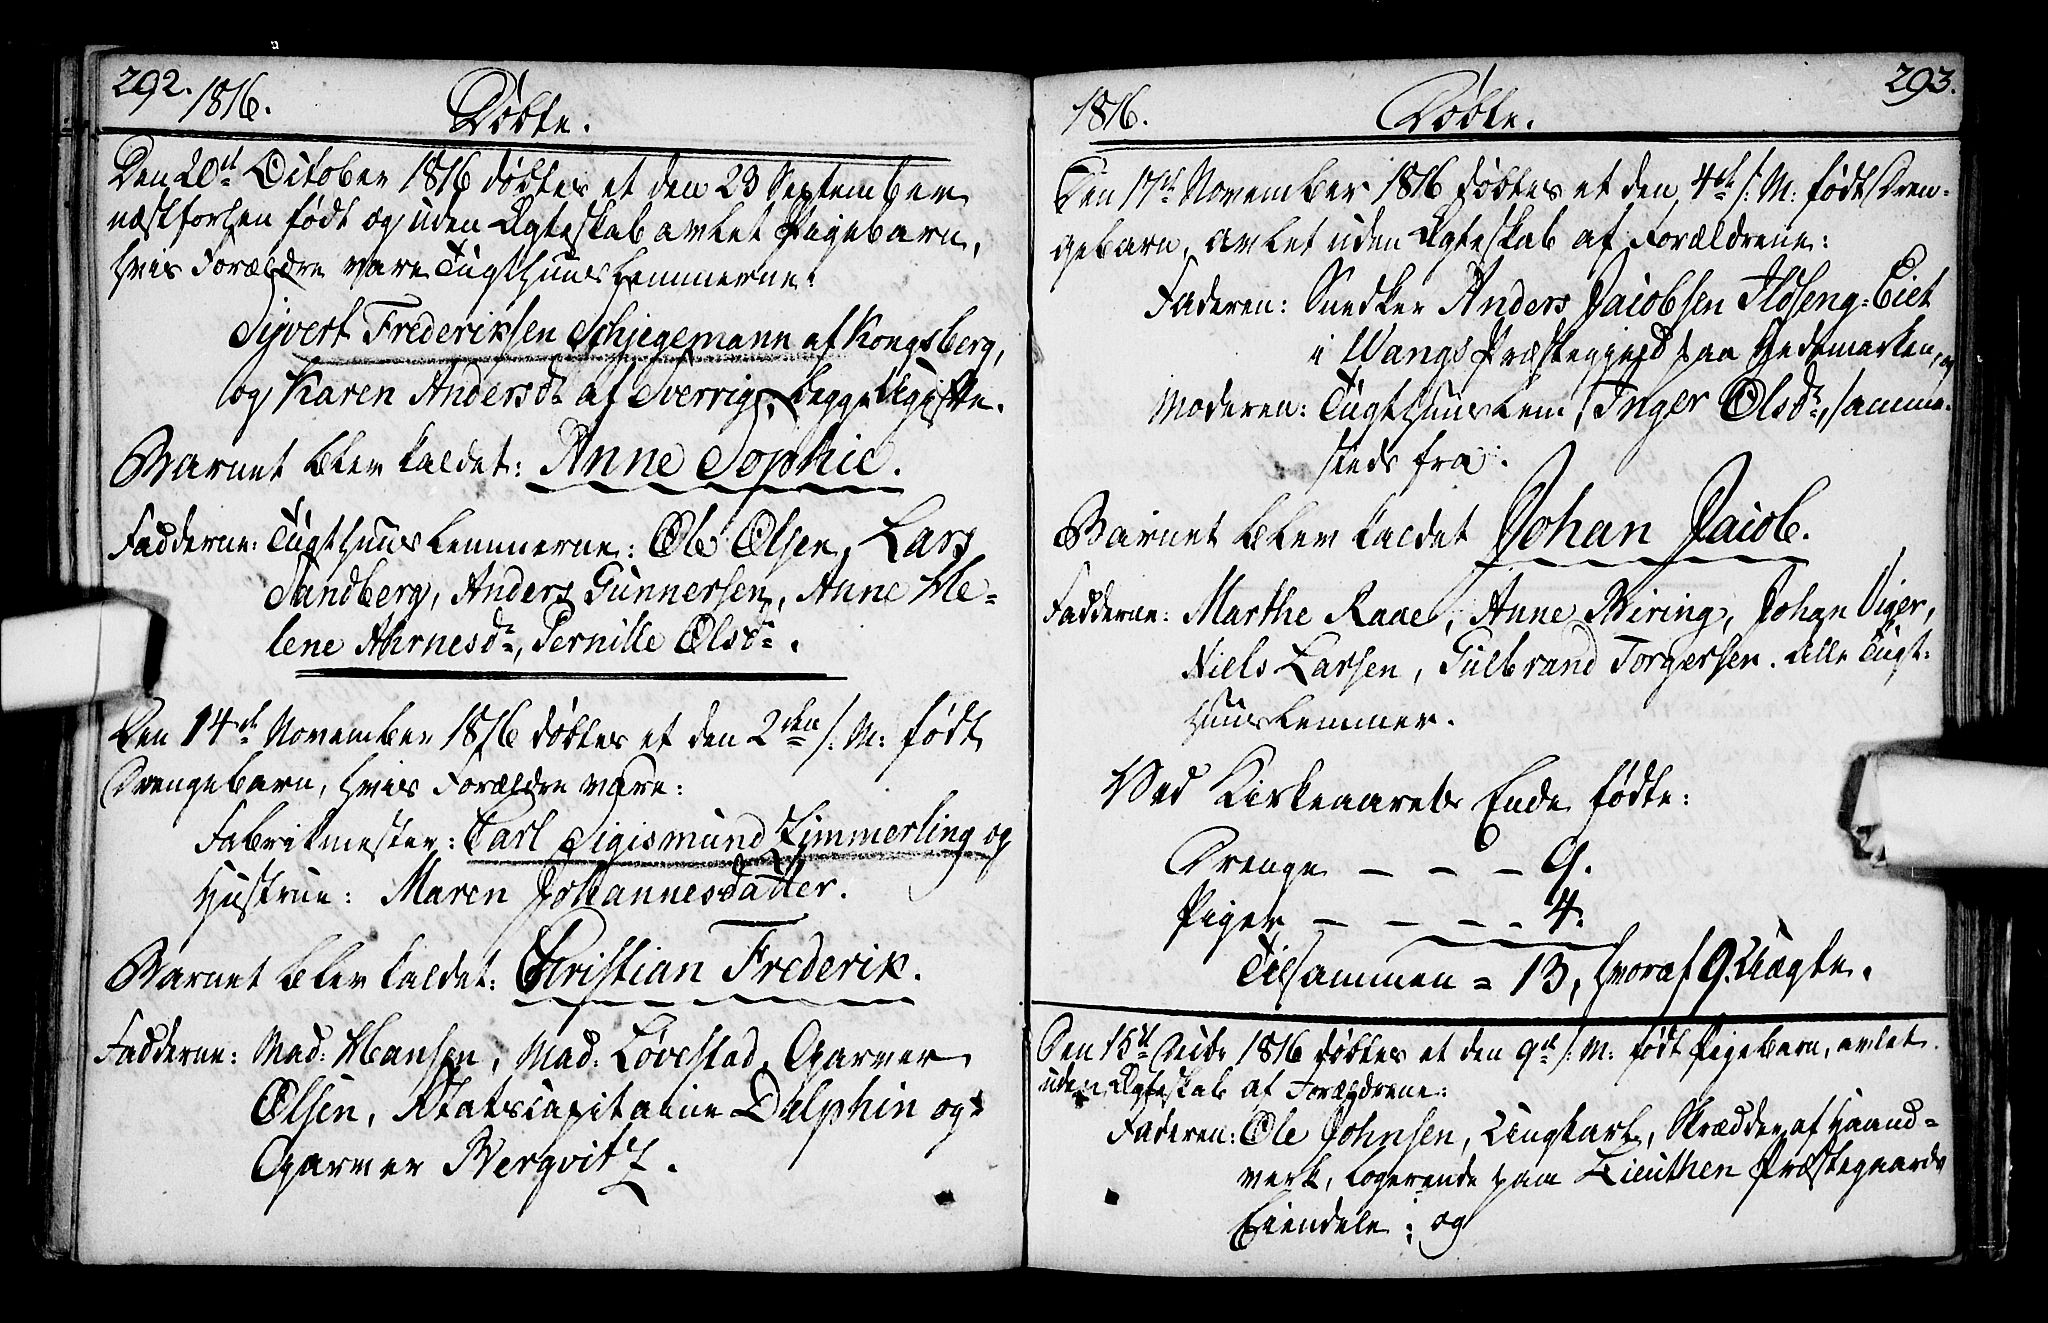 292. 1816. Döbte.
Den 20de October 1816 döbtes et den 23 September
næstforhen födt og uden Ægteskab avlet Pigebarn,
hvis Forældre vare Tugthuuslemmerne:
Sijvert Frederiksen Schjegemann af Kongsberg,
og Karen Andersdr af Sverrig, begge Ugifte.
Barnet blev kaldet: Anne Sophie.
Fadderne: Tugthuuslemmerne: Ole Olsen, Lars
Sandberg, Anders Gunnersen, Anne He-
lene Ahrnesdr, Pernille Olsdr.
Den 14de November 1816 döbtes et den 2den s: M: födt
Drengebarn, hvis Forældre vare:
Fabrikmester: Carl Sigismund Zimmerling og
Hustrue: Maren Johannesdatter.
Barnet blev kaldet: Christian Frederik.
Fadderne: Mad: Hansen, Mad: Lövestad, Garver
Olsen, Statscapitaine Delphin og
Garver Bergvitz.
1816. Döbte. 293.
Den 17de November 1816 döbtes et den 4de s: M: födt Dren-
gebarn, avlet uden Ægteskab af Forældrene:
Faderen: Snedker Anders Jacobsen Ildseng-Eiet
i Wangs Præstegjeld paa Hedemarken, og
Moderen: Tugthuuslem Inger Olsdr, samme-
steds fra.
Barnet blev kaldet Johan Jacob.
Fadderne: Marthe Raae, Anne Biring, Johan Viger,
Niels Larsen, Gulbrand Torgersen. Alle Tugt-
huuslemmer.
Ved Kirkeaarets Ende födte:
Drenge - - - 9.
Piger - - - - 4.
Tilsammen = 13, hvoraf 9 Uægte.
Den 15de Decbr 1816 döbtes et den 9de s: M: födt Pigebarn, avlet
uden Ægteskab af Forældrene:
Faderen: Ole Johnsen, Ungkarl, Skrædder af Haand-
verk, logerende paa Præstegaards
Eiendele; og